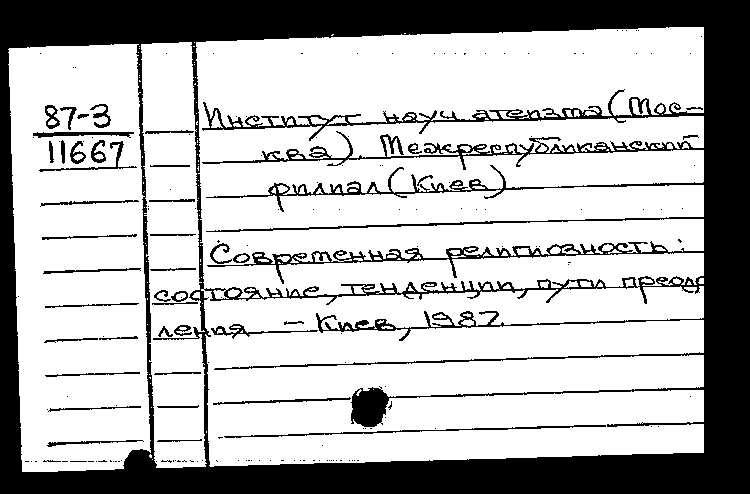 87-3
11667
Институт науч атеизма (Мос-
ква). Межреспубликанский
филиал (Киев)
Современная религиозность:
состояние, тенденции, пути преодо
ления – Киев, 1987.